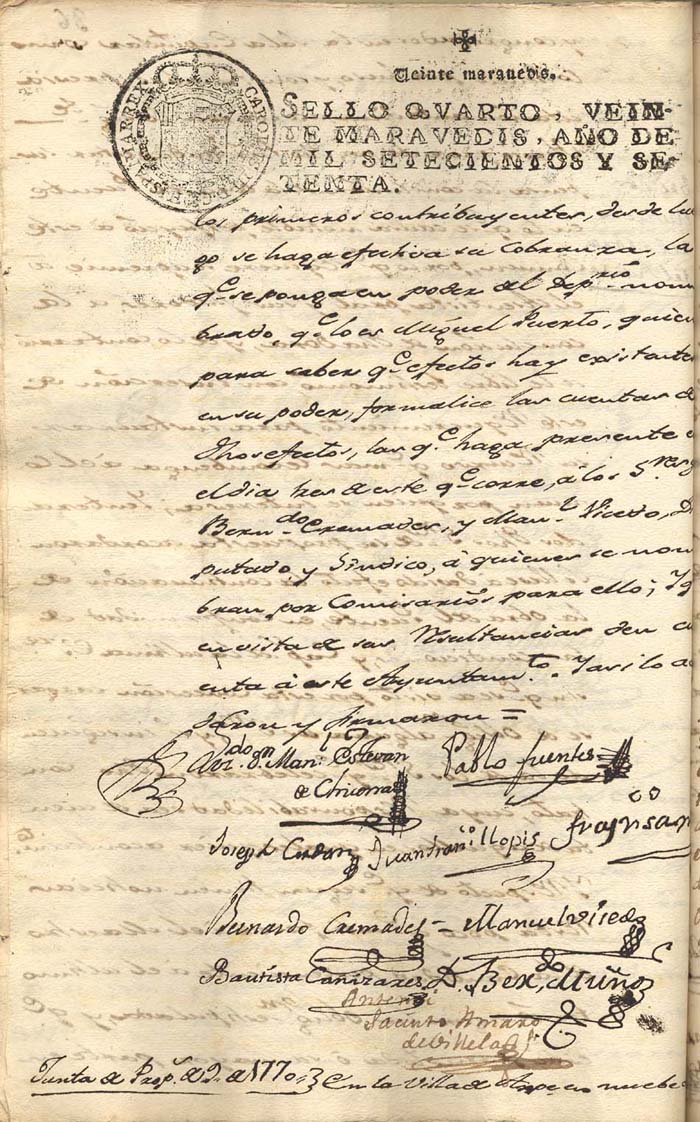 Veinte maravedis.
SELLO QVARTO, VEIN-
TE MARAVEDIS, AÑO DE
MIL SETECIENTOS Y SE-
TENTA.
CAROLUS III D G HISPANIAR REX
los primeros contribuyentes, desde lue
go se haga efectiva su Cobranza, la
qe. se ponga en poder del Deprio. nom
brado, qe. lo es Miguel Puerto, quien
para saber qe. efectos hay existente
en su poder, formalice las cuentas de
dhos efectos, las qe. haga presente
el dia tres de este qe. corre, á los Sres.
Berndo. Cremades, y Manl. Vicedo, Di
putado, y Sindico, á quienes se nom
bran por Comisarios para ello; Y
en vista de sus Resultancias den cu
enta á este Ayuntamto. Y asi lo a
daron y firmaron =
dn. Manl. Estevan
de Chicorra
Pablo fuentes
Joseph Cerdan
Juan franco. Llopis
Bernardo Cremades = Manuel visedo
Bautista Cañizares D. Berdo. Muñoz
Antemi
Jacinto Amaro
de Villela
Junta de Prop. de 9. de 1770,, En la Villa de Aspe en nuebe